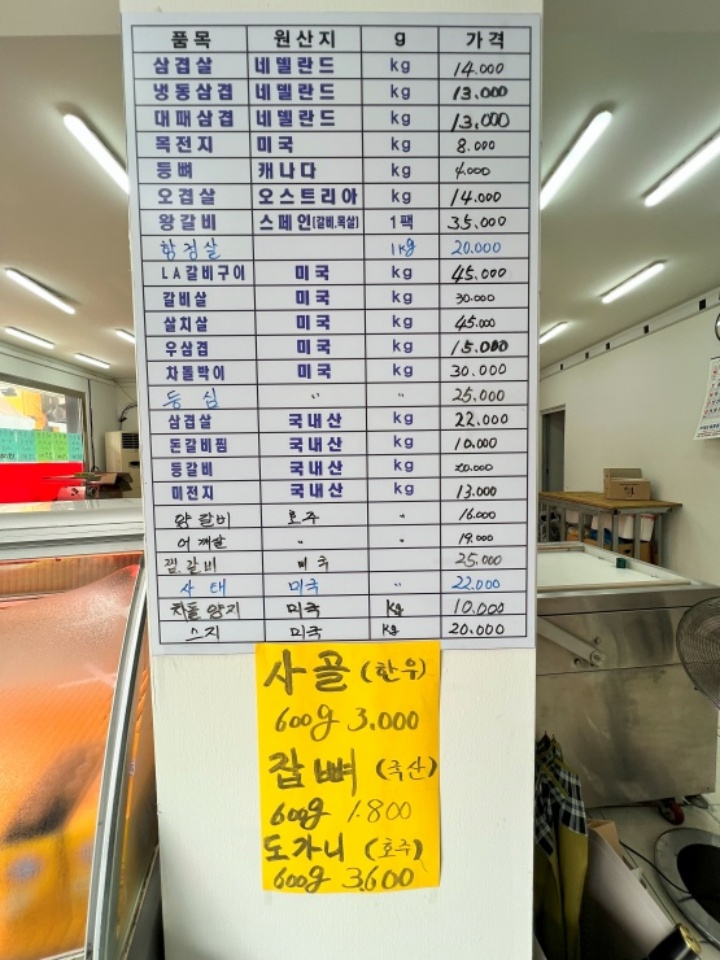 품목 원산지 g 가격
삼겹살 네델란드 kg 14.000
냉동삼겹 네델란드 kg 13.000
대패삼겹 네델란드 kg 13,000
목전지 미국 kg 8.000
등뼈 캐나다 kg 4.000
오겹살 오스트리아 kg 14.000
왕갈비 스페인(갈비.목살) 1팩 35.000
항정살 1kg 20.000
LA갈비구이 미국 kg 45.000
갈비살 미국 kg 30.000
살치살 미국 kg 45.000
우삼겹 미국 kg 15.000
차돌박이 미국 kg 30.000
등심 " " 25.000
삼겹살 국내산 kg 22.000
돈갈비찜 국내산 kg 10.000
등갈비 국내산 kg 20.000
미전지 국내산 kg 13.000
양갈비 호주 " 16.000
어깨살 " " 19.000
찜.갈비 미국 25.000
사태 미국 " 22.000
차돌양지 미국 kg 10.000
스지 미국 kg 20.000
사골 (한우)
600g 3.000
잡뼈 (국산)
600g 1.800
도가니 (호주)
600g 3.600